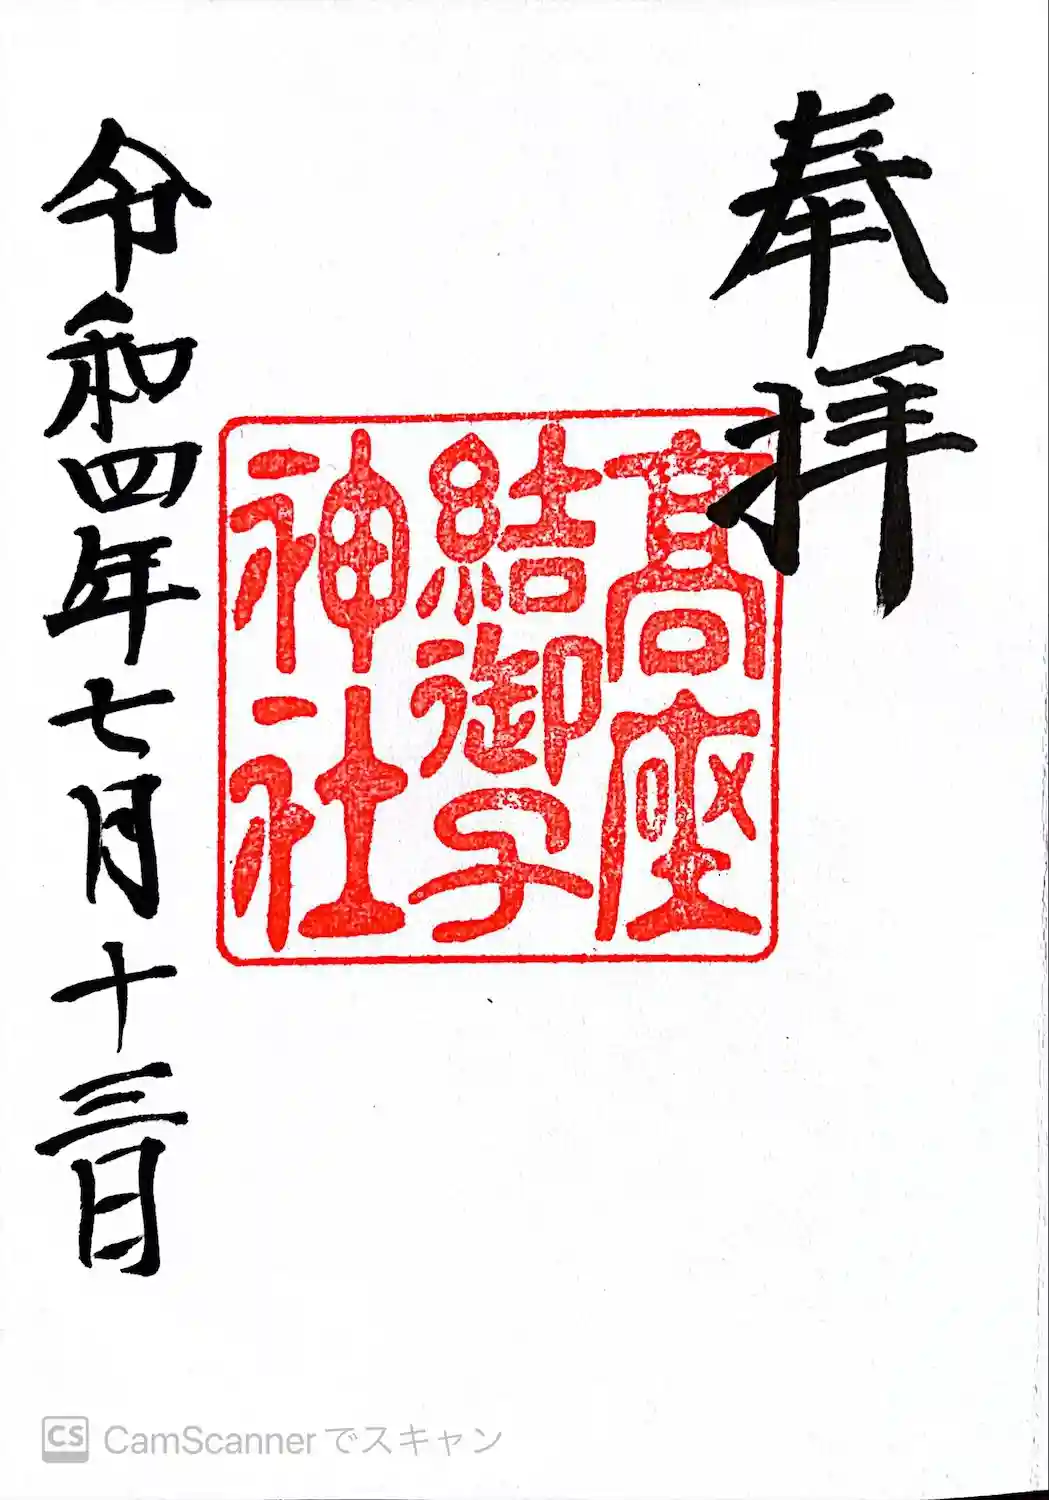 奉拝
髙座
結御子
神社
令和四年七月十三日
CS CamScannerでスキャン